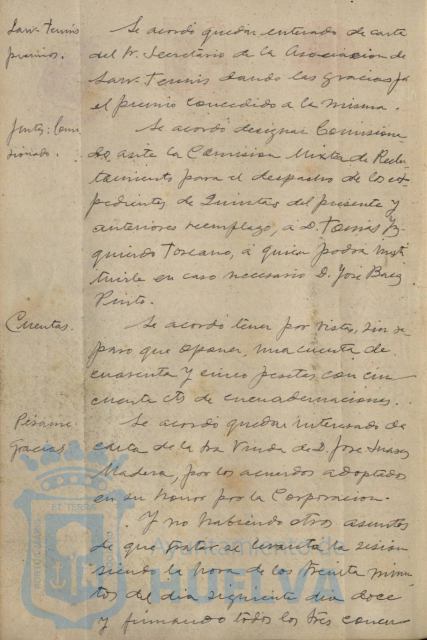 Law-Tennis
premios.
Se acordó quedar enterado de carta
del Sr. Secretario de la Asociacion de
Law-Tennis dando las gracias pr
el premio concedido a la misma.
Se acordó designar Comisiona
do, ante la Comision Mixta de Reclu
tamiento para el despacho de los ex
pedientes de Quintas del presente y
anteriores reemplazo, á D. Tomás Y
quierdo Toscano, á quien podra susti
tuirle en caso necesario D. José Baez
Pinto.
Cuentas.
Se acordó tener por vistas, sin re
paro que oponer, una cuenta de
cuarenta y cinco pesetas con cin
cuenta cts de encuadernaciones.
Pésame
Gracias
Se acordó quedar interesado de
carta de la Sra Viuda de D. Jose Suarez
Madera, por los acuerdos adoptados
en su honor por la Corporacion.
Y no habiendo otros asuntos
de que tratar se levanta la sesion
siendo la hora de los treinta minu
tos del dia siguiente dia doce
y firmando todos los tres concu
Ayuntamiento de
HUELVA